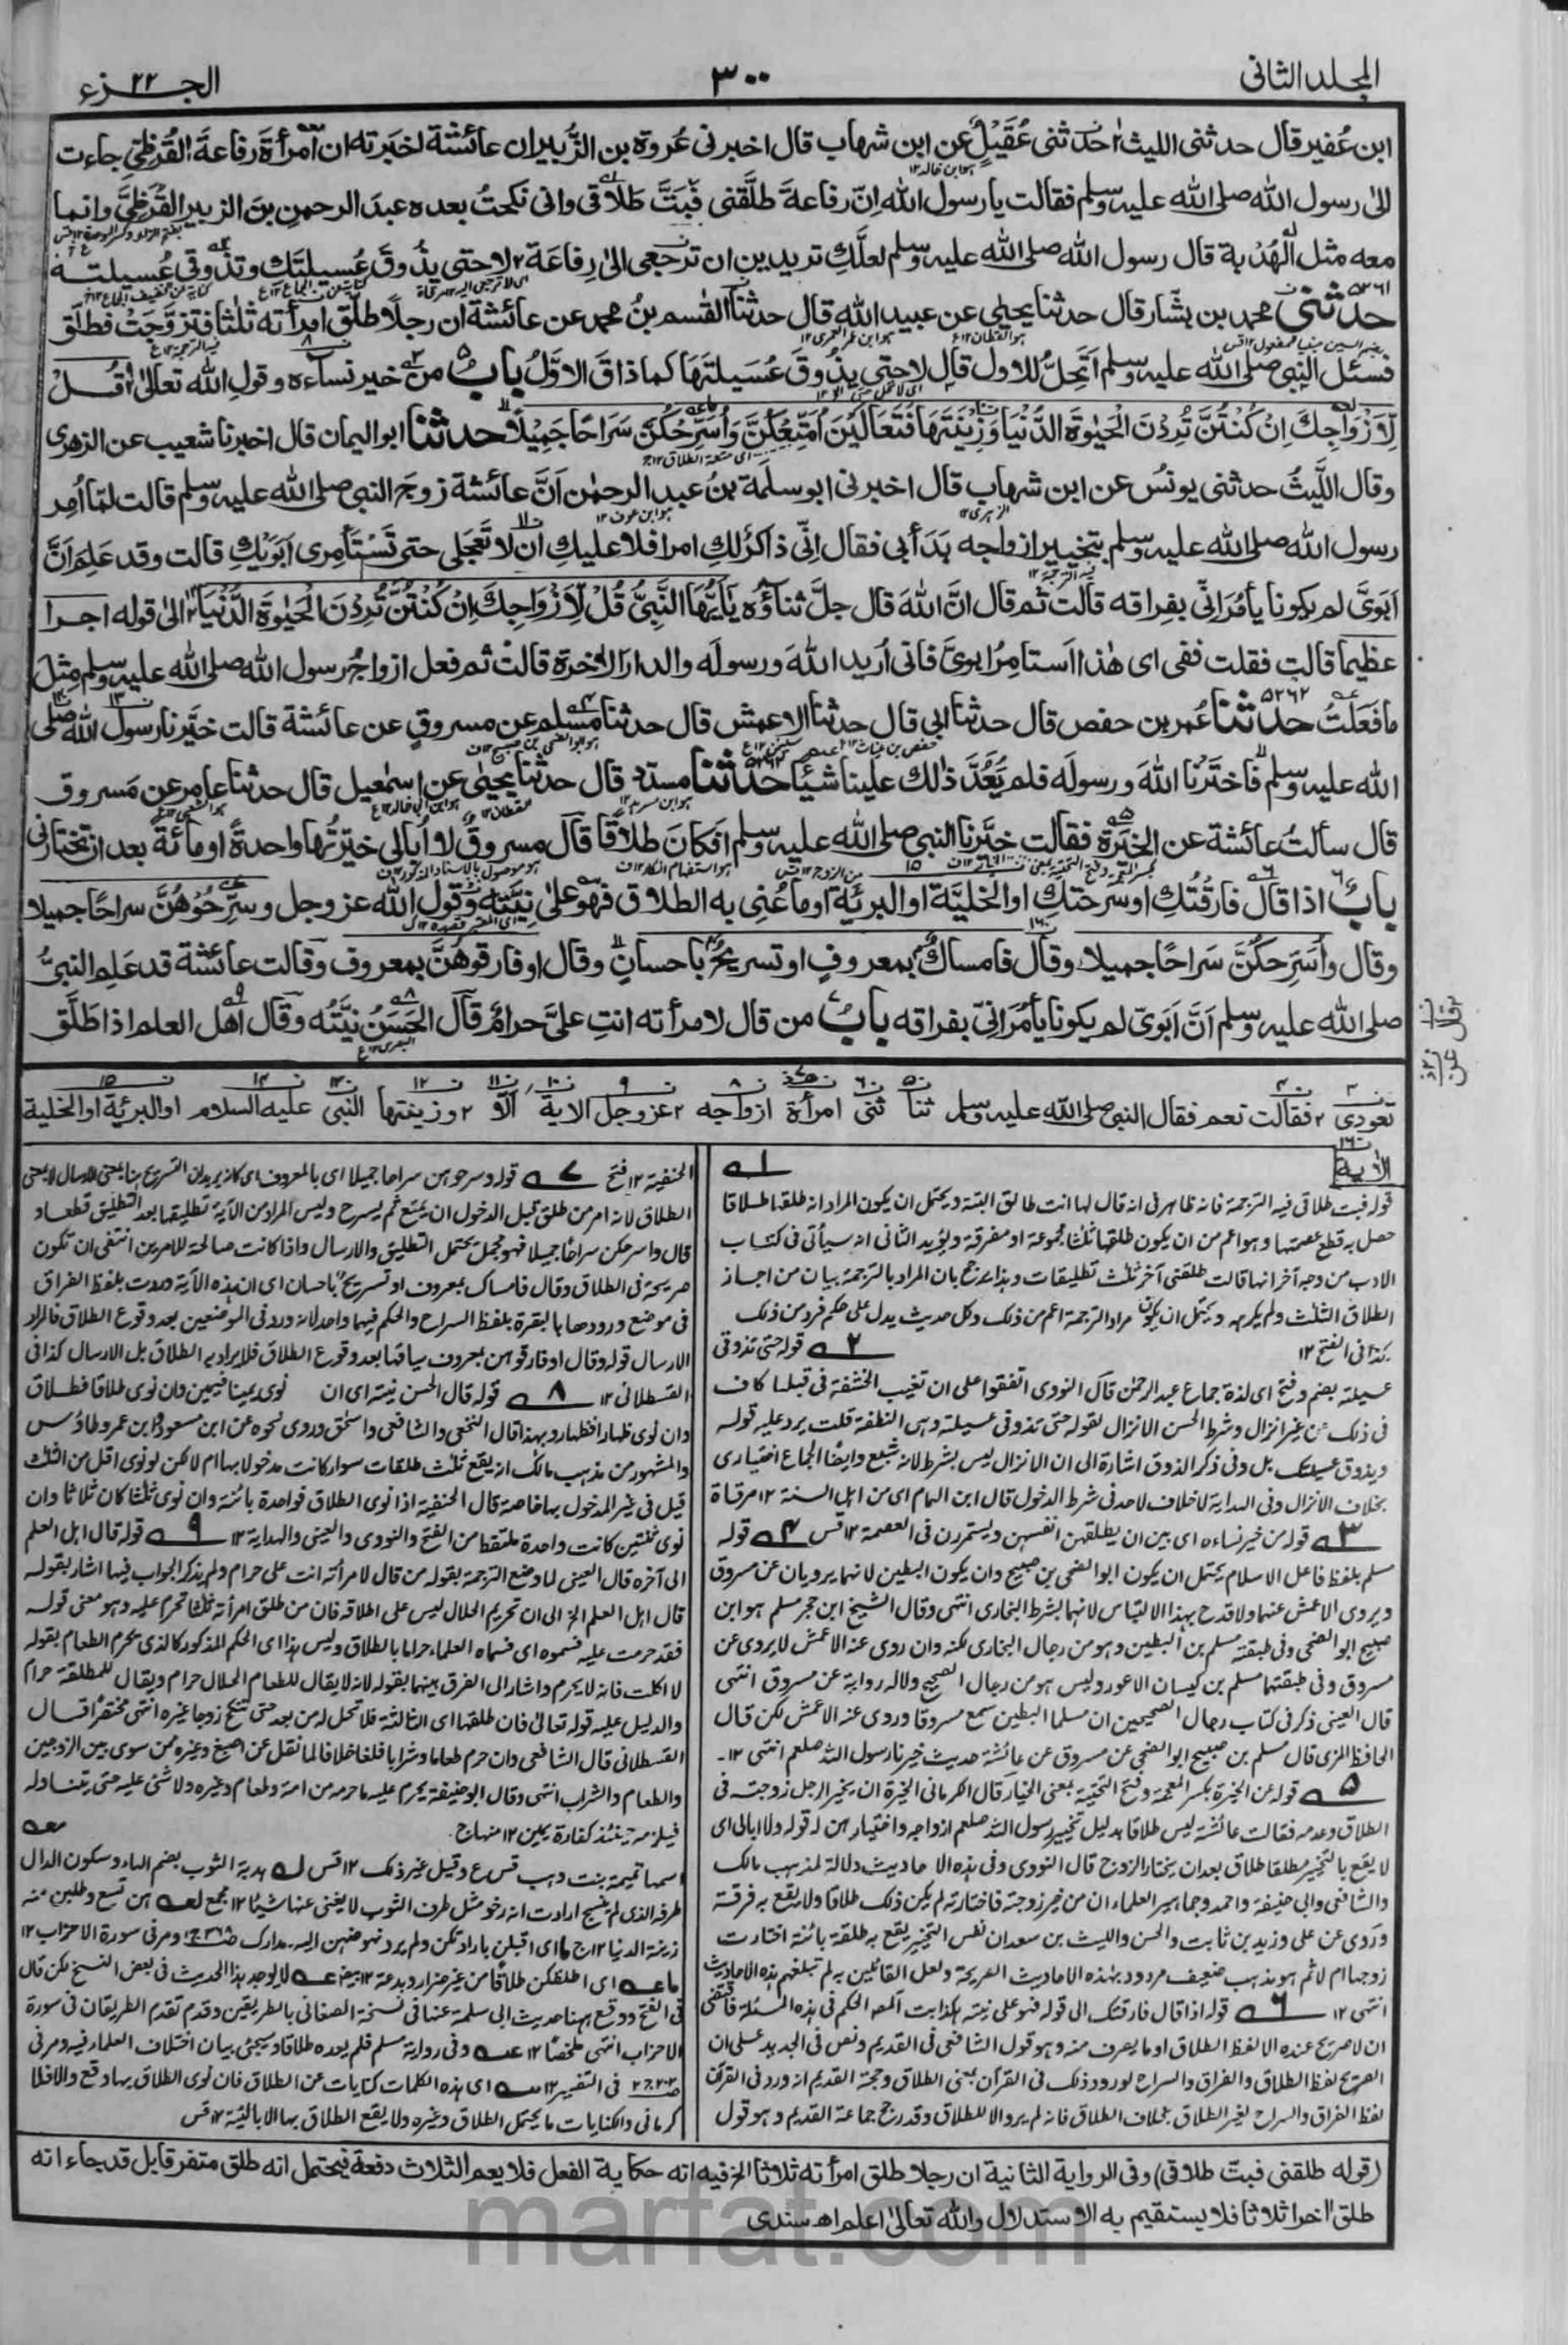 المجلد الثانى
٣٠٠
الجزء ٢٢
ابن عُفير قال حدثنى الليث حدثنى عُقَيْلٌ عن ابن شهاب قال اخبرنى عُروة بن الزُّبير ان عائشة اخبَرته ان امرأةَ رفاعةَ القُرَظىّ جاءت
الىٰ رسول الله صلى الله عليه وسلم فقالت يا رسول الله اِنّ رفاعةَ طلَّقنى فَبَتَّ طَلَاقى وانى نكحتُ بعده عبدَ الرحمنِ بنَ الزبير القُرَظىَّ وانما
معه مثل الهُدْبة قال رسول الله صلى الله عليه وسلم لعلَّكِ تريدين ان ترجعى الىٰ رِفاعَة لا حتى يذُوقَ عُسيلتَكِ وتذُوقى عُسيلته
حدثنى محمد بن بشّار قال حدثنا يحيٰى عن عبيد الله قال حدثنا القٰسم بنُ محمد عن عائشة ان رجلًا طلَّق امرأته ثلٰثا فتزوَّجَتْ فطلَّق
فسئل النبى صلى الله عليه وسلم اَتَحِلُّ للاول قال لا حتى يذُوقَ عُسَيلتَهَا كما ذاقَ الاوّلُ بابُ من خير نساءه وقولِ الله تعالىٰ قُلْ
لِّاَزْوَاجِكَ اِنْ كُنْتُنَّ تُرِدْنَ الْحَيٰوةَ الدُّنْيَا وَزِيْنَتَهَا فَتَعَالَيْنَ اُمَتِّعْكُنَّ وَاُسَرِّحْكُنَّ سَرَاحًا جَمِيْلًا حدثنا ابو اليمان قال اخبرنا شعيب عن الزهرى
وقال اللَّيثُ حدثنى يونسُ عن ابن شهاب قال اخبرنى ابو سلمة بنُ عبد الرحمٰن اَنَّ عائشة زوجَ النبى صلى الله عليه وسلم قالت لمّا اُمِر
رسول الله صلى الله عليه وسلم بتخيير ازواجه بَدَأ بى فقال اِنّى ذاكرٌ لكِ امرا فلا عليكِ ان لا تَعْجَلى حتى تَسْتَأمِرى اَبَوَيْكِ قالت وقد عَلِمَ اَنَّ
اَبَوَىَّ لم يكونا يأمُرَانّى بفِراقه قالت ثم قال انَّ اللهَ قال جلَّ ثناؤُه يٰاَيُّهَا النَّبِىُّ قُلْ لِّاَزْوَاجِكَ اِنْ كُنْتُنَّ تُرِدْنَ الْحَيٰوةَ الدُّنْيَا الىٰ قوله اجرا
عظيما قالت فقلت ففى اى هٰذا اَستامِرُ ابوىَّ فانى اُريد اللهَ ورسولَه والدار الاٰخرة قالت ثم فعل ازواجُ رسول الله صلى الله عليه وسلم مِثلَ
ما فعَلتُ حدّثنا عُمر بن حفص قال حدثنا ابى قال حدثنا الاعمش قال حدثنا مسلم عن مسروقٍ عن عائشة قالت خيَّرنا رسول الله صلى
الله عليه وسلم فاخترْنا اللهَ ورسولَه فلم يَعُدَّ ذٰلك علينا شيئًا حدثنا مسدد قال حدثنا يحيٰى عن اسمٰعيل قال حدثنا عامر عن مَسروق
قال سألتُ عائشة عن الخِيَرة فقالت خيَّرنا النبى صلى الله عليه وسلم افَكانَ طلاقًا قال مسروقٌ لا اُبالى خيَّرتُها واحدةً او مائةً بعد ان تختارنى
بابُ اذا قال فارَقْتُكِ او سرحتكِ او الخليّة او البريّة او ما عُنِى به الطلاق فهو علىٰ نِيَّته وقول الله عز وجل وسرِّحُوْهُنَّ سراحًا جميلا
وقال واُسَرِّحكُنَّ سَرَاحًا جميلا وقال فامساكٌ بمعروفٍ او تسريحٌ باحسانٍ وقال او فارقوهُنَّ بمعروف وقالت عائشة قد عَلِم النبىُّ
صلى الله عليه وسلم اَنَّ اَبَوَىّ لم يكونا يأمُرَانىّ بفراقه بابُ من قال لامرأته انتِ علىَّ حرامٌ قال الحَسَنُ نِيَّتُه وقال اهل العلم اذا طَلَّق
تعودى فقالت نعم فقال النبى صلى الله عليه وسلم ثنا ثنى امرأة ازواجه عز وجل الاية الَا وزينتها النبى عليه السلام او البريّة او الخلية
الاٰية
قوله فبت طلاقى فيه الترجمة فانه ظاهر فى انه قال لها انت طالق البتة ويحتمل ان يكون المراد انه طلقها طلاقا
حصل به قطع عصمتها وهو اعم من ان يكون طلقها ثلٰثا مجموعة او مفرقة ويؤيد الثانى انه سيأتى فى كتاب
الادب من وجه آخر انها قالت طلقنى آخر ثلٰث تطليقات وهذا يرجح بان المراد بالترجمة بيان من اجاز
الطلاق الثلٰث ولم يكرهه ويحتمل ان يكون مراد الترجمة اعم من ذلك وكل حديث يدل على حكم فرد من ذلك
كذا فى الفتح ١٢ ٢ قوله حتى تذوقى
عسيلته بضم وفتح اى لذة جماع عبد الرحمٰن قال النووى اتفقوا على ان تغيب الحشفة فى قبلها كاف
فى ذلك من غير انزال وشرط الحسن الانزال لقوله حتى تذوقى عسيلته وهى النطفة قلت يرد عليه قوله
ويذوق عسيلتك بل وفى ذكر الذوق اشارة الى ان الانزال ليس بشرط لانه شبع وايضًا الجماع اختيارى
بخلاف الانزال وفى الهداية لا خلاف لاحد فى شرط الدخول قال ابن الهمام اى من اهل السنة ١٢ مرقاة
٣ قوله من خير نساءه اى بين ان يطلقهن انفسهن ويستمررن فى العصمة ١٢ قس ٤ قوله
مسلم بلفظ فاعل الاسلام يحتمل ان يكون ابو الضحى بن صبيح وان يكون البطين لانهما يرويان عن مسروق
ويروى الاعمش عنهما ولا قدح بهذا الالتباس لانهما بشرط البخارى انتهى وقال الشيخ ابن حجر مسلم هو ابن
صبيح ابو الضحى وفى طبقته مسلم بن البطين وهو من رجال البخارى لكنه وان روى عنه الاعمش لا يروى عن
مسروق وفى طبقتهما مسلم بن كيسان الاعور وليس هو من رجال الصحيح ولا له رواية عن مسروق انتهى
قال العينى ذكر فى كتاب رجال الصحيحين ان مسلما البطين سمع مسروقا وروى عنه الاعمش لكن قال
الحافظ المزى قال مسلم بن صبيح ابو الضحى عن مسروق عن عائشة حديث خيرنا رسول الله صلعم انتهى ١٢-
٥ قوله عن الخيرة بكسر المعجمة وفتح التحتية بمعنى الخيار قال الكرمانى الخيرة ان يخير الرجل زوجته فى
الطلاق وعدمه فقالت عائشة ليس طلاقا بدليل تخيير رسول الله صلعم ازواجه واختيارهن له قوله ولا ابالى اى
لا يقع بالتخيير مطلقا طلاق بعد ان يختار الزوج قال النووى وفى هذه الاحاديث دلالة لمذهب مالك
والشافعى وابى حنيفة واحمد وجماهير العلماء ان من خير زوجته فاختارته لم يكن ذلك طلاقا ولا يقع به فرقة
وروى عن على وزيد بن ثابت والحسن والليث بن سعد ان نفس التخيير يقع به طلقة بائنة اختارت
زوجها ام لا ثم هو مذهب ضعيف مردود بهذه الاحاديث الصريحة ولعل القائلين به لم تبلغهم هذه الاحاديث
انتهى ١٢ ٦ قوله اذا قال فارقتك الى قوله فهو على نيته هكذا بت المص الحكم فى هذه المسئلة فاقتضى
ان لا صريح عنده الا لفظ الطلاق او ما يعرف منه وهو قول الشافعى فى القديم ونص فى الجديد على ان
الصريح لفظ الطلاق والفراق والسراح لورود ذلك فى القرآن بمعنى الطلاق وحجة القديم انه ورد فى القرآن
لفظ الفراق والسراح لغير الطلاق بخلاف الطلاق فانه لم يرد الا للطلاق وقد رجح جماعة القديم وهو قول
الحنفية ١٢ فتح ٧ قوله وسرحوهن سراحا جميلا اى بالمعروف اى كانه يريد ان التسريح هنا بمعنى الارسال لا بمعنى
الطلاق لانه امر من طلق قبل الدخول ان يمتع ثم يسرح وليس المراد من الآية تطليقها بعد التطليق قطعاد
قال واسرحكن سراحًا جميلا فهو مجمل يحتمل التطليق والارسال واذا كانت صالحة للامرين انتفى ان تكون
صريحة فى الطلاق وقال فامساك بمعروف او تسريح باحسان اى ان هذه الآية وردت بلفظ الفراق
فى موضع ورودها بالبقرة بلفظ السراح والحكم فيهما واحد لانه ورد فى الموضعين بعد وقوع الطلاق فالمراد
الارسال قوله وقال او فارقوهن بمعروف سياقها بعد وقوع الطلاق فلا يراد به الطلاق بل الارسال كذا فى
القسطلانى ١٢ ٨ قوله قال الحسن نيته اى ان نوى يمينا فيمين وان نوى طلاقا فطلاق
وان نوى ظهارا فظهار وبهذا قال النخعى والشافعى واسحٰق وروى نحوه عن ابن مسعود وابن عمر وطاوس
والمشهور من مذهب مالك انه يقع ثلٰث طلقات سواء كانت مدخولا بها ام لا لكن لو نوى اقل من الثلٰث
قبل فى غير المدخول بها خاصة قال الحنفية اذا نوى الطلاق فواحدة بائنة وان نوى ثلٰثا كان ثلاثا وان
نوى ثنتين كانت واحدة ملتقط من الفتح والنووى والعينى والهداية ١٢ ٩ قوله قال اهل العلم
الى آخره قال العينى لما وضع الترجمة بقوله من قال لامرأته انت على حرام ولم يذكر الجواب فيها اشار بقوله
قال اهل العلم الخ الى ان تحريم الحلال ليس على اطلاقه فان من طلق امرأته ثلٰثا تحرم عليه وهو معنى قوله
فقد حرمت عليه فسموه اى فسماه العلماء حراما بالطلاق وليس هذا اى الحكم المذكور كالذى يحرم الطعام بقوله
لا اكلت فانه لا يحرم واشار الى الفرق بينهما بقوله لانه لا يقال للطعام الحلال حرام ويقال للمطلقة حرام
والدليل عليه قوله تعالىٰ فان طلقها اى الثالثة فلا تحل له من بعد حتى تنكح زوجا غيره انتهى مختصرا قال
القسطلانى قال الشافعى وان حرم طعاما وشرابا فلغا خلافا لما نقل عن اصبغ وغيره ممن سوى بين الزوجين
والطعام والشراب انتهى وقال ابو حنيفة يحرم عليه ما حرمه من امة وطعام وغيره ولا شئ عليه حتى يتناوله
فيلزمه حينئذ كفارة يمين ١٢ منهاج.
اسمها تميمة بنت وهب قس ع وقيل غير ذلك ١٢ قس هدبة الثوب بضم الهاء وسكون الدال
طرفه الذى لم ينسج ارادت انه رخو مثل طرف الثوب لا يغنى عنها شيئًا ١٢ مجمع هن تسع وطلبن منه
زينة الدنيا ١٢ ج اى اقبلن بارادتكن ولم يرد نهوضهن اليه-مدارك ومر فى سورة الاحزاب ١٢
اى اطلقكن طلاقا من غير ضرار وبدعة ١٢ بيض لا يوجد هذا الحديث فى بعض النسخ لكن قال
فى الفتح ووقع ههنا حديث ابى سلمة عنها فى نسخة الصغانى بالطريقين وقدم تقدم الطريقان فى سورة
الاحزاب انتهى ملخصًا ١٢ وفى رواية مسلم فلم يعده طلاقا وسيجئ بيان اختلاف العلماء فيه ومر فى
فى التفسير ١٢ اى هذه الكلمات كنايات عن الطلاق فان نوى الطلاق بها وقع والا فلا
كرمانى والكنايات ما يحتمل الطلاق وغيره ولا يقع الطلاق بها الا بالنية ١٢ قس
(قوله طلقنى فبت طلاقى) وفى الرواية الثانية ان رجلا طلق امرأته ثلاثا الخ فيه انه حكاية الفعل فلا يعم الثلاث دفعة فيحتمل انه طلق متفرقا بل قد جاء انه
طلق آخرا ثلاثا فلا يستقيم به الاستدلال والله تعالىٰ اعلم اھ سندى
marfat.com